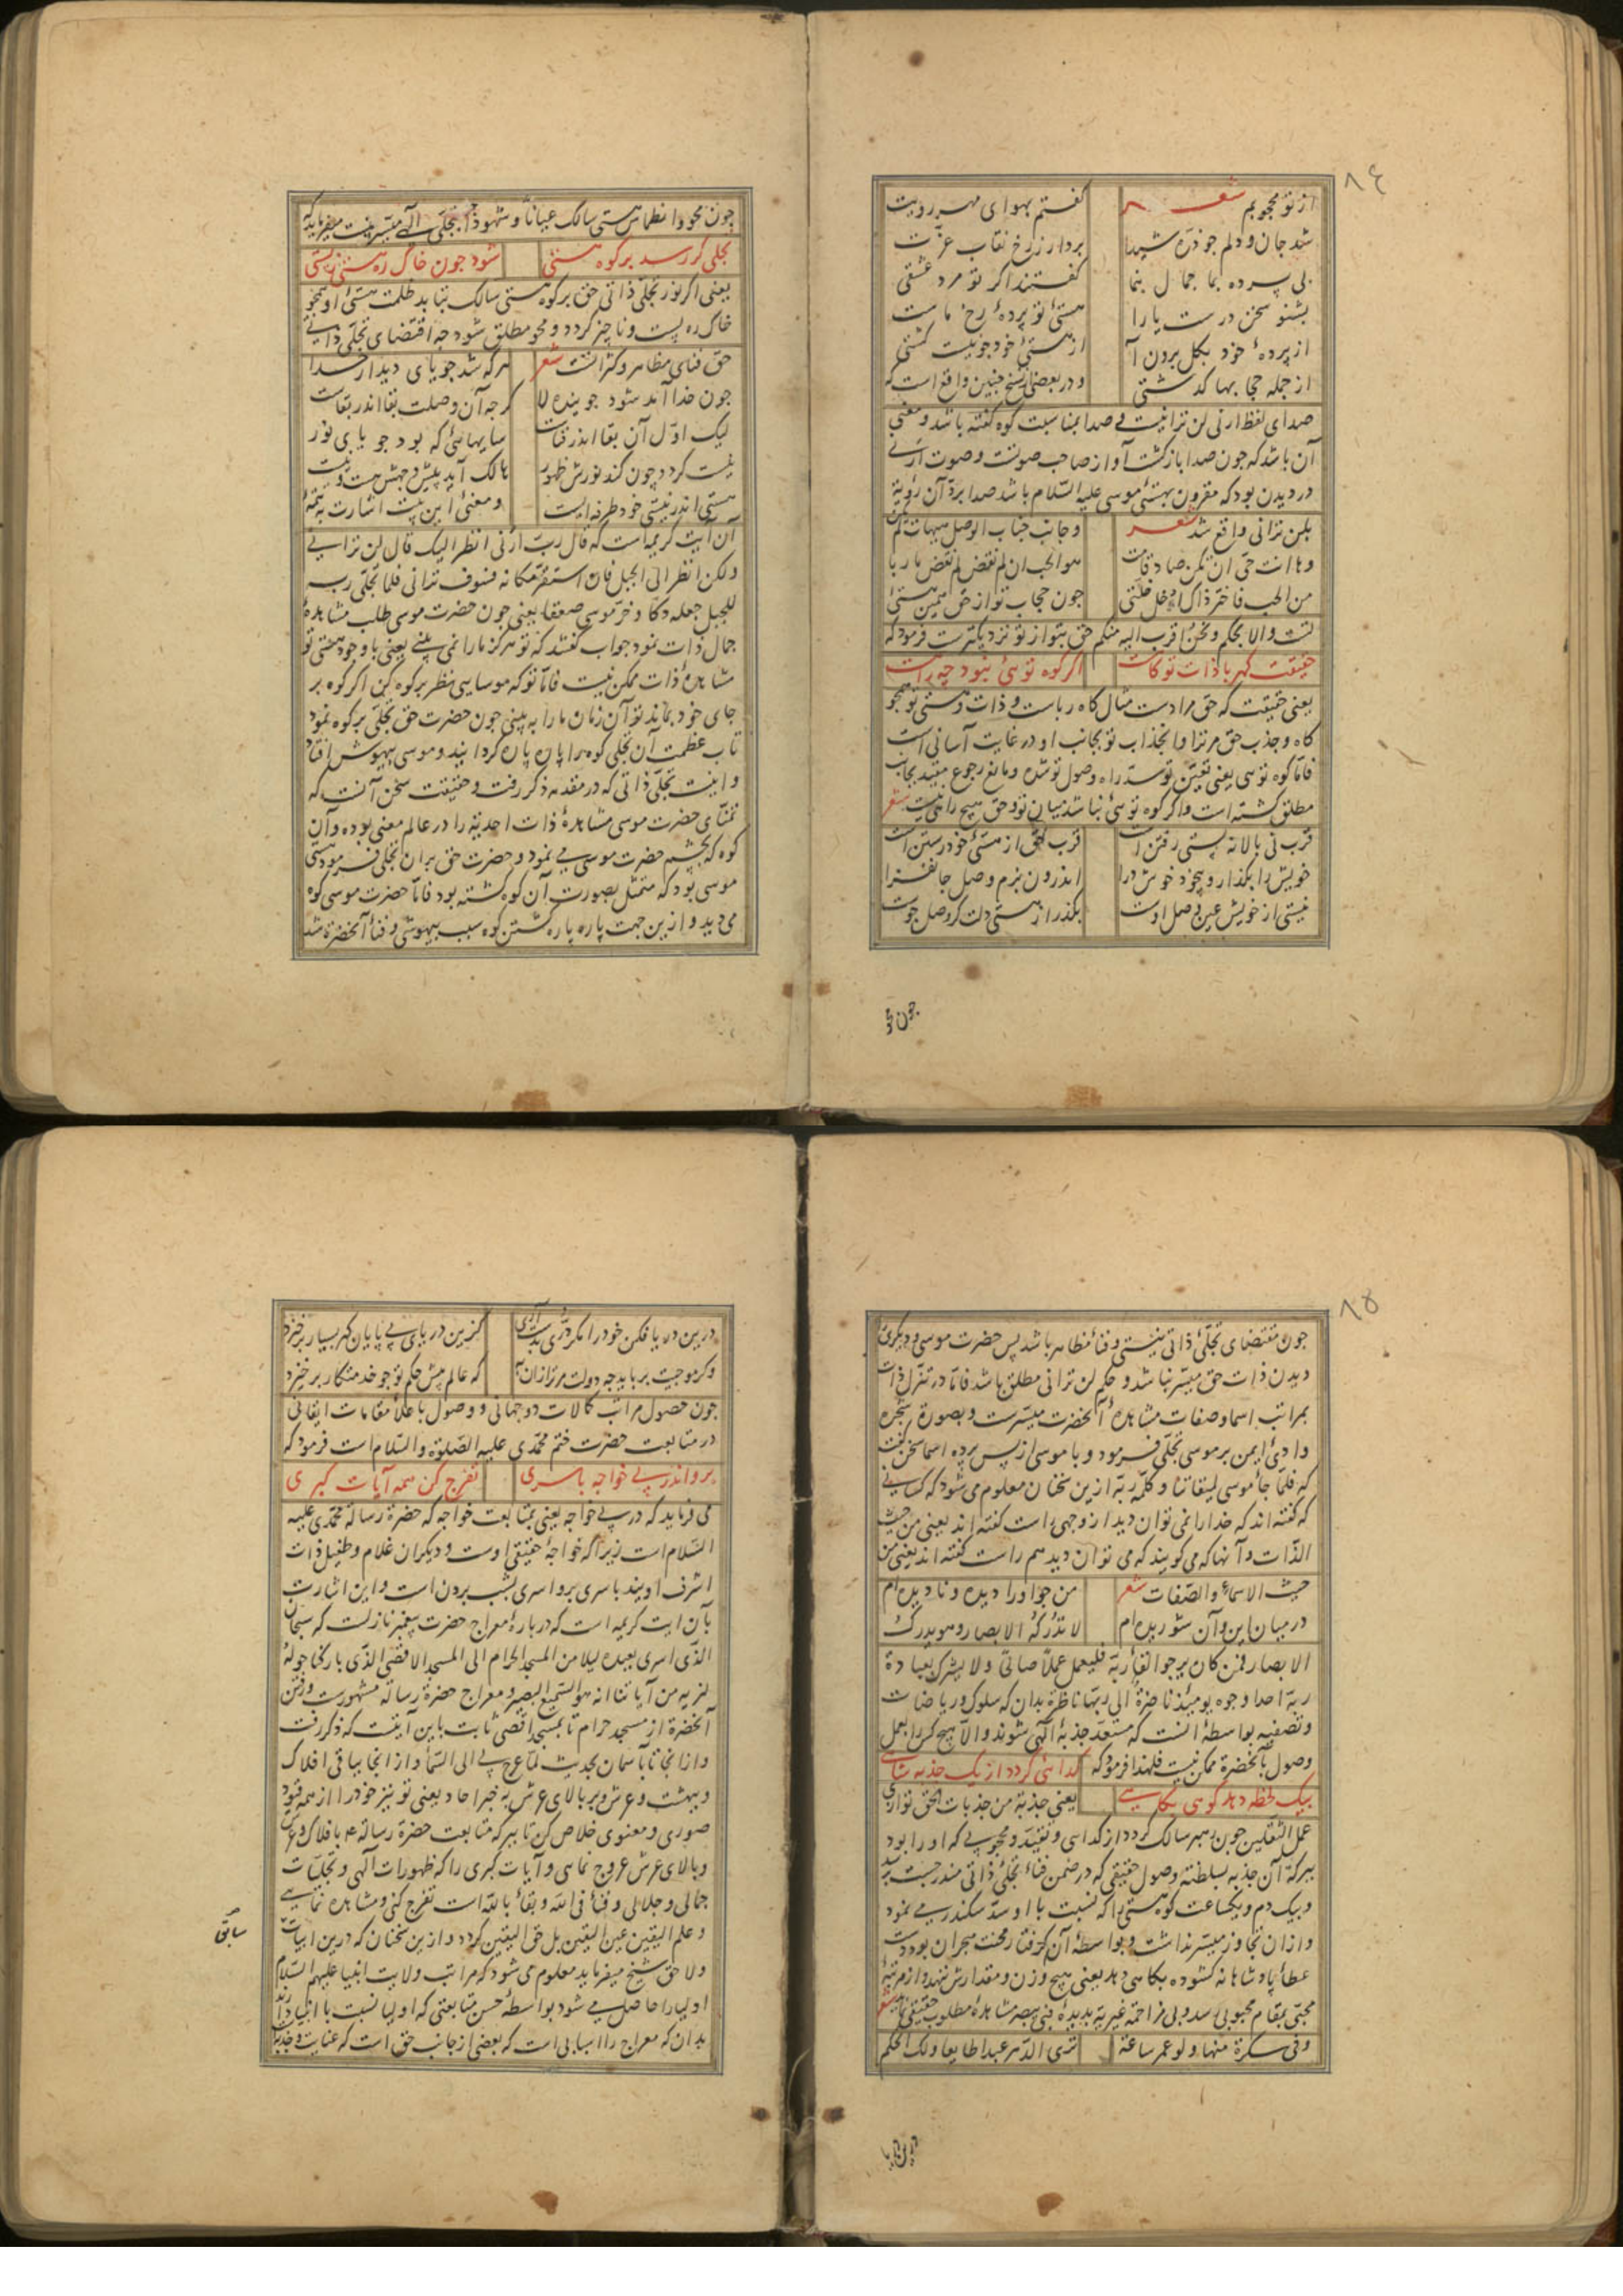 ٨٤
از تو محجوبم شعر کفتم بهوای مهر رویت
شد جان و دلم جو ذره شیدا بردار ز رخ نقاب عزت
بی پرده بما جمال بنما کفتند اکر تو مرد عشقی
بشنو سخن درست یارا هستئ تو پردهٔ رخ ماست
از پردهٔ خود بکل برون آ از هستئ خود جو نیست کشتی
از جمله حجابها کذشتی و در بعضی نسخ جنین واقع است که
صدای لفظ ارنی لن ترانیست و صدا بمناسبت کوه کفته باشد و معنی
آن باشد که جون صدا بازکشت آواز صاحب صوتست و صوت ارنی
در دیدن بود که مقرون بهستئ موسی علیه السلام باشد صدا برد آن رؤیة
بلن ترانی واقع شد شعر و جانب جناب الوصل هیهات لم یکن
وها انت حی ان تکن صادقا مت هو الحب ان لم تقض لم تقض ماربا
من الحب فاختر ذاک او خل خلتی جون حجاب تو از حق همین هستئ
تست و الا بحکم و نحن اقرب الیه منکم حق بتو از تو نزدیکترست فرمود که
حقیقت کهربا ذات تو کاهست اکر کوه توئی نبود چه راهست
یعنی حقیقت که حق مرادست مثال کاه رباست و ذات و هستی تو همجو
کاه و جذب حق مر ترا و انجذاب تو بجانب او در غایت آسانی است
فاما کوه توئی یعنی تعین تو سد راه وصول تو شده و مانع رجوع مقید بجانب
مطلق کشته است و اکر کوه توئی نباشد میان تو و حق هیچ راهی نیست شعر
قرب نی بالا نه پستی رفتن است قرب حق از هستئ خود رستن است
خویش را بکذار و بیخود خوش درا اندرون بزم وصل جانفزا
نیستی از خویش عین وصل اوست بکذر از هستی دلت کر وصل جوست
جون محو
جون محو و انطماس هستی سالک عیانا و شهودا جز بتجلی الهی میسر نیست میفرماید که
تجلی کر رسد بر کوه هستی شود جون خاک ره هستی ز پستی
یعنی اکر نور تجلی ذاتی حق بر کوه هستی سالک بتابد ظلمت هستئ او همجو
خاک ره پست و ناجیز کردد و محو مطلق شود جه اقتضای تجلی ذاتی
حق فنای مظاهر و کثراتست شعر هر که شد جویای دیدار خدا
جون خدا آمد شود جوینده لا کرجه آن وصلت بقا اندر بقاست
لیک اول آن بقا اندر فناست سایهائی که بود جویای نور
نیست کردد چون کند نورش ظهور هالک آید پیش وجهش هست و نیست
هستی اندر نیستی خود طرفه ایست و معنی این بیت اشارت بتتمهٔ
آن آیت کریمه است که قال رب ارنی انظر الیک قال لن ترانی
ولکن انظر الی الجبل فان استقر مکانه فسوف ترانی فلما تجلی ربه
للجبل جعله دکا و خر موسی صعقا یعنی جون حضرت موسی طلب مشاهدهٔ
جمال ذات نمود جواب کفتند که تو هرکز مارا نمی بینی یعنی با وجود هستی تو
مشاهدهٔ ذات ممکن نیست فاما تو که موسایی منظر بر کوه کن اکر کوه بر
جای خود بماند تو آن زمان مارا به بینی جون حضرت حق تجلی بر کوه نمود
تاب عظمت آن تجلی کوه را پاره پاره کردانید و موسی بیهوش افتاد
و اینست تجلی ذاتی که در مقدمه ذکر رفت و حقیقت سخن آنست که
تمنای حضرت موسی مشاهدهٔ ذات احدیة را در عالم معنی بوده و آن
کوه که بچشم حضرت موسی می نمود و حضرت حق بران تجلی فرمود هستی
موسی بود که متمثل بصورت آن کوه کشته بود فاما حضرت موسی کوه
می دید و ازین جهت پاره پاره کشتن کوه سبب بیهوشی و فناء آنحضرة شد
٨٥
جون مقتضای تجلئ ذاتی نیستی و فناء مظاهر باشد پس حضرت موسی و دیکری
دیدن ذات حق میسر نباشد و حکم لن ترانی مطلق باشد فاما در تنزل ذات
بمراتب اسما و صفات مشاهدهٔ آنحضرت میسرست و بصورة شجره
وادئ ایمن بر موسی تجلی فرمود و با موسی از پس پرده اسما سخن کفت
که فلما جاء موسی لمیقاتنا و کلمه ربه ازین سخنان معلوم می شود که کسانی
که کفته اند که خدا را نمی توان دید از وجهی راست کفته اند یعنی من حیث
الذات و آنها که می کویند که می توان دید هم راست کفته اند یعنی من
حیث الاسماء و الصفات شعر من جو او را دیده و نادیده ام
در میان این و آن شوریده ام لا تدرکه الابصار و هو یدرک
الابصار فمن کان یرجو لقاء ربه فلیعمل عملا صالحا و لا یشرک بعبادة
ربه احدا وجوه یومئذ ناضرة الی ربها ناظرة بدان که سلوک و ریاضات
و تصفیه بواسطهٔ آنست که مستعد جذبهٔ الهی شوند و الا هیچ کس را بعمل
وصول بآنحضرة ممکن نیست فلهذا فرمود که کدائی کردد از یک جذبه شاهی
بیک لحظه دهد کوهی بکاهی یعنی جذبة من جذبات الحق توازی
عمل الثقلین جون رهبر سالک کردد از کدائی و تقید و محجوبی که او را بود
ببرکة آن جذبه بسلطنة وصول حقیقی که در ضمن فناء تجلی ذاتی مندرجست برسد
و بیک دم و یکساعت کوه هستی را که نسبت با او سد سکندر می نمود
و ازان تجاوز میسر نداشت و بواسطهٔ آن کرفتار محنت هجران بود دست
عطاء پادشاهانه کشوده بکاهی دهد یعنی هیچ وزن و مقدارش ننهد و از مرتبهٔ
محبی بمقام محبوبی رسد و بی مزاحمة غیریة بدیدهٔ فبی یبصر مشاهدهٔ مطلوب حقیقی نماید شعر
و فی سکرة منها ولو عمر ساعة تری الدهر عبدا طایعا و لک الحکم
درین دریا
درین دریا فکن خود را مکر دری بدست آری کزین دریای بی پایان کهر بسیار برخیزد
وکر موجیت برباید جه دولت مر ترا زان به که عالم پیش حکم تو جو خدمتکار برخیزد
جون حصول مراتب کمالات دوجهانی و وصول باعلاء مقامات ایقانی
در متابعت حضرت ختم محمدی علیه الصلوة والسلام است فرمود که
برو اندر پی خواجه باسری تفرج کن همه آیات کبری
می فرماید که در پی خواجه یعنی بمتابعت خواجه که حضرة رسالة محمدی علیه
السلام است زیرا که خواجهٔ حقیقی اوست و دیکران غلام و طفیل ذات
اشرف اویند باسری برو اسری بشب بردن است و این اشارت
بآن ایت کریمه است که در بارهٔ معراج حضرت پیغمبر نازلست که سبحان
الذی اسری بعبده لیلا من المسجد الحرام الی المسجد الاقصی الذی بارکنا حوله
لنریه من آیاتنا انه هو السمیع البصیر و معراج حضرة رسالة مشهورست و رفتن
آنحضرة از مسجد حرام تا بمسجد اقصی ثابت باین آیتست که ذکر رفت
و ازانجا تا باسمان بحدیث لما عرج بی الی السماء و ازانجا بباقی افلاک
و بهشت و عرش و بر بالای عرش به خبر احاد یعنی تو نیز خود را از همه قیود
صوری و معنوی خلاص کن تا ببرکه متابعت حضرة رسالة ع بافلاک و عرش
و بالای عرش عروج نمائی و آیات کبری را که ظهورات الهی و تجلیات
جمالی و جلالی و فناء فی الله و بقاء بالله است تفرج کنی و مشاهده نمائی
و علم الیقین عین الیقین بل حق الیقین کردد و ازین سخنان که درین ابیات
سابق
ولاحق شیخ میفرماید معلوم می شود که مراتب ولایت انبیا علیهم السلام
اولیا را حاصل می شود بواسطهٔ حسن متابعتی که اولیا نسبت با انبیا دارند
بدان که معراج را اسبابی است که بعضی از جانب حق است که عنایت و جذبه